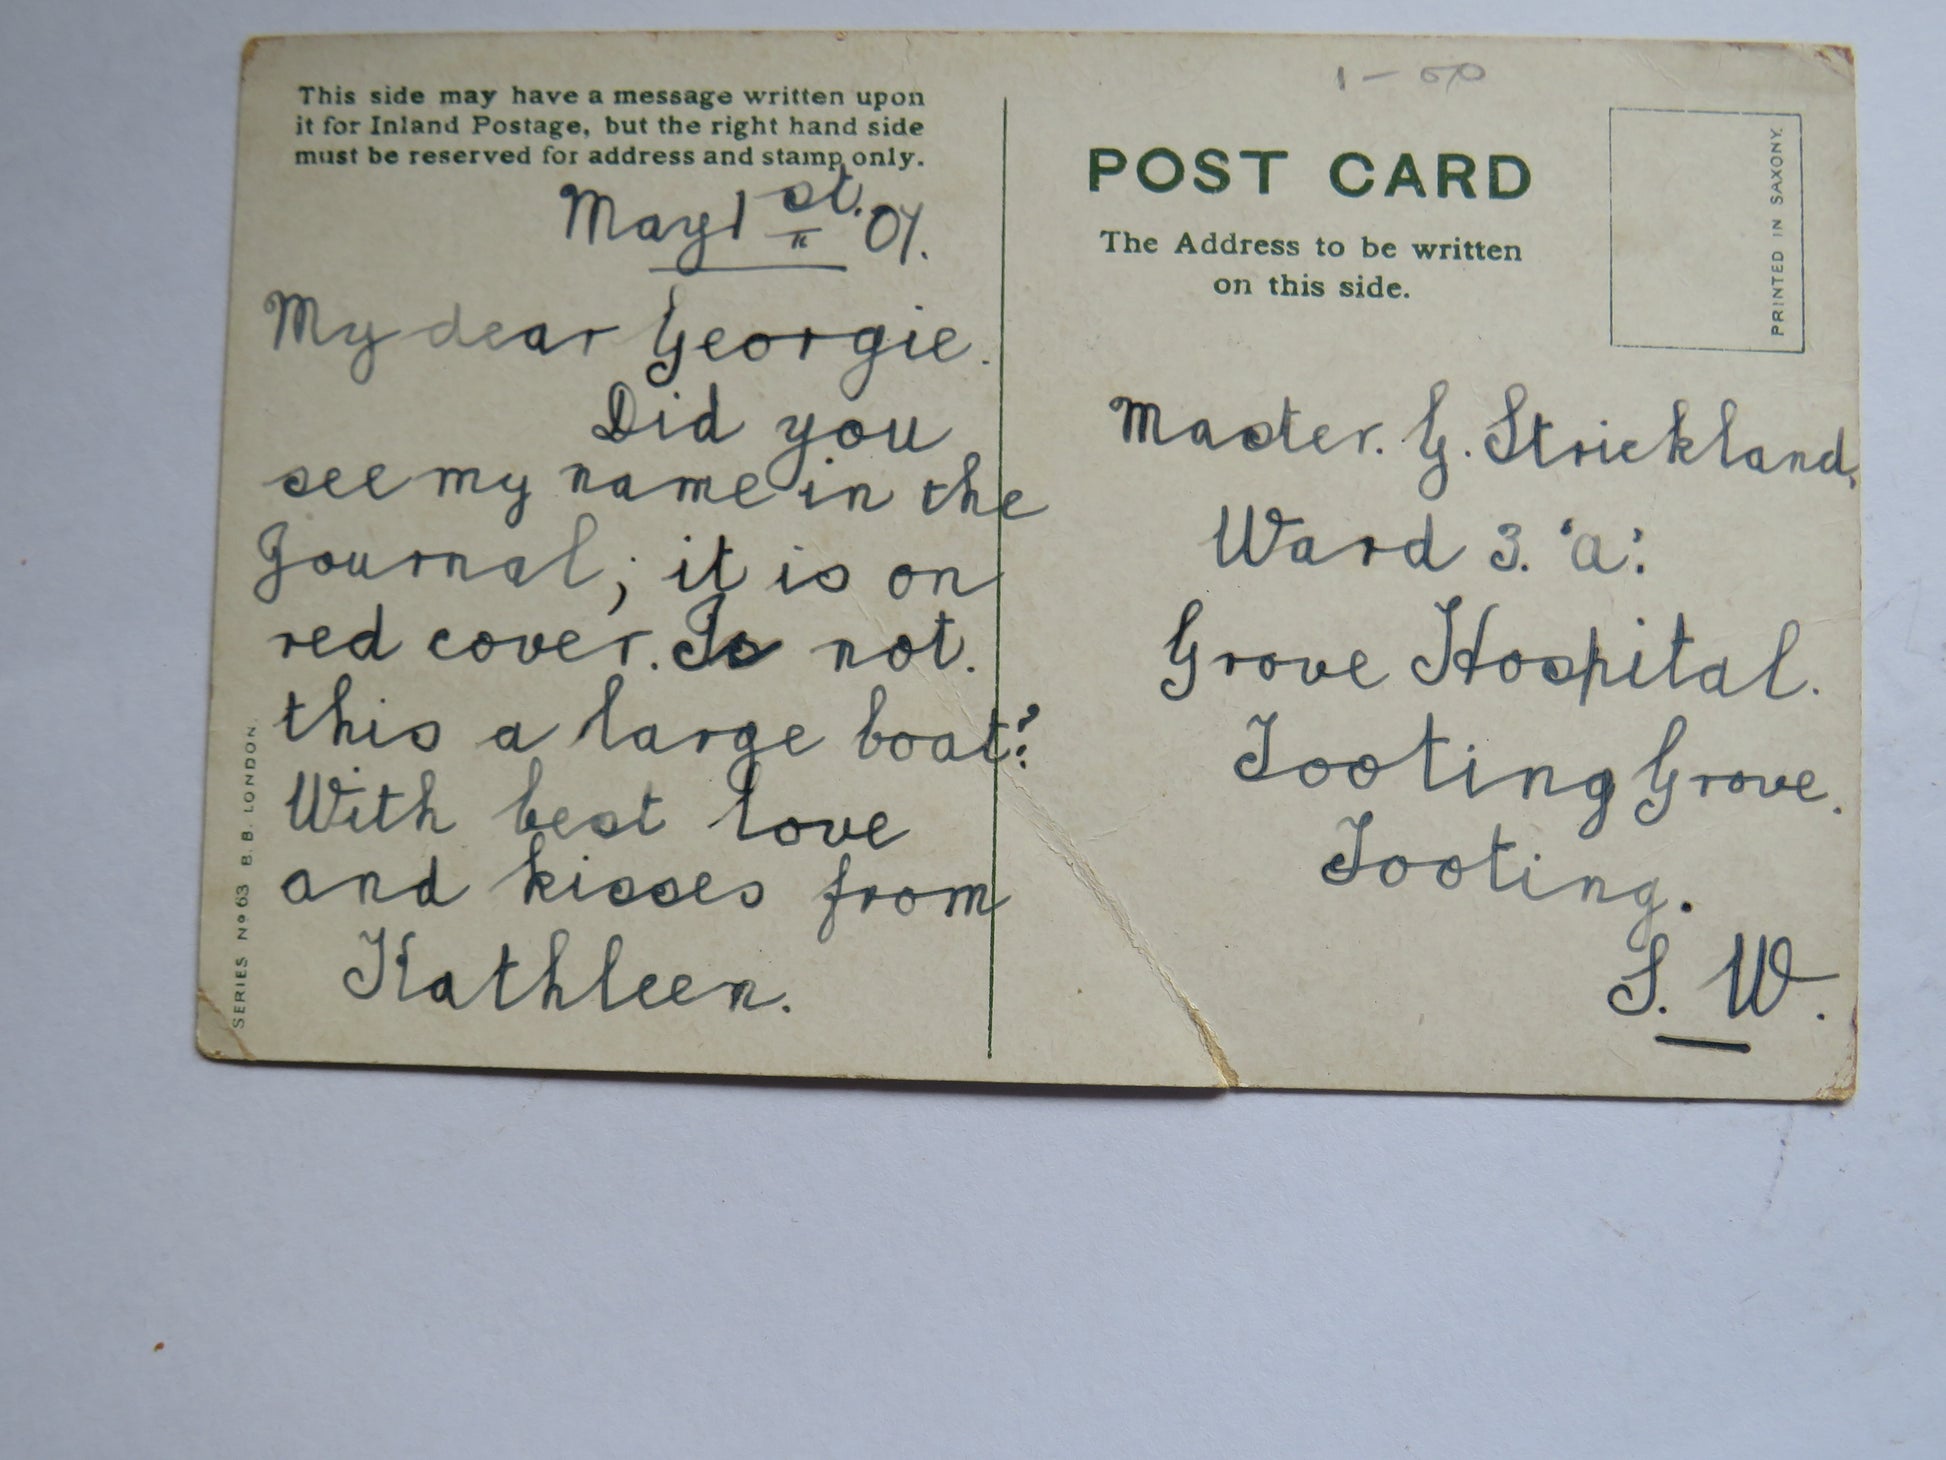 This side may have a message written upon
it for Inland Postage, but the right hand side
must be reserved for address and stamp only.
May 1st. '07.
My dear Georgie.
Did you
see my name in the
Journal; it is on
red cover. Is not.
this a large boat?
With best love
and kisses from
Kathleen.
SERIES No 63 B. B. LONDON.
POST CARD
The Address to be written
on this side.
PRINTED IN SAXONY.
Master. G. Strickland,
Ward 3. 'a'.
Grove Hospital.
Tooting Grove.
Tooting.
S. W.